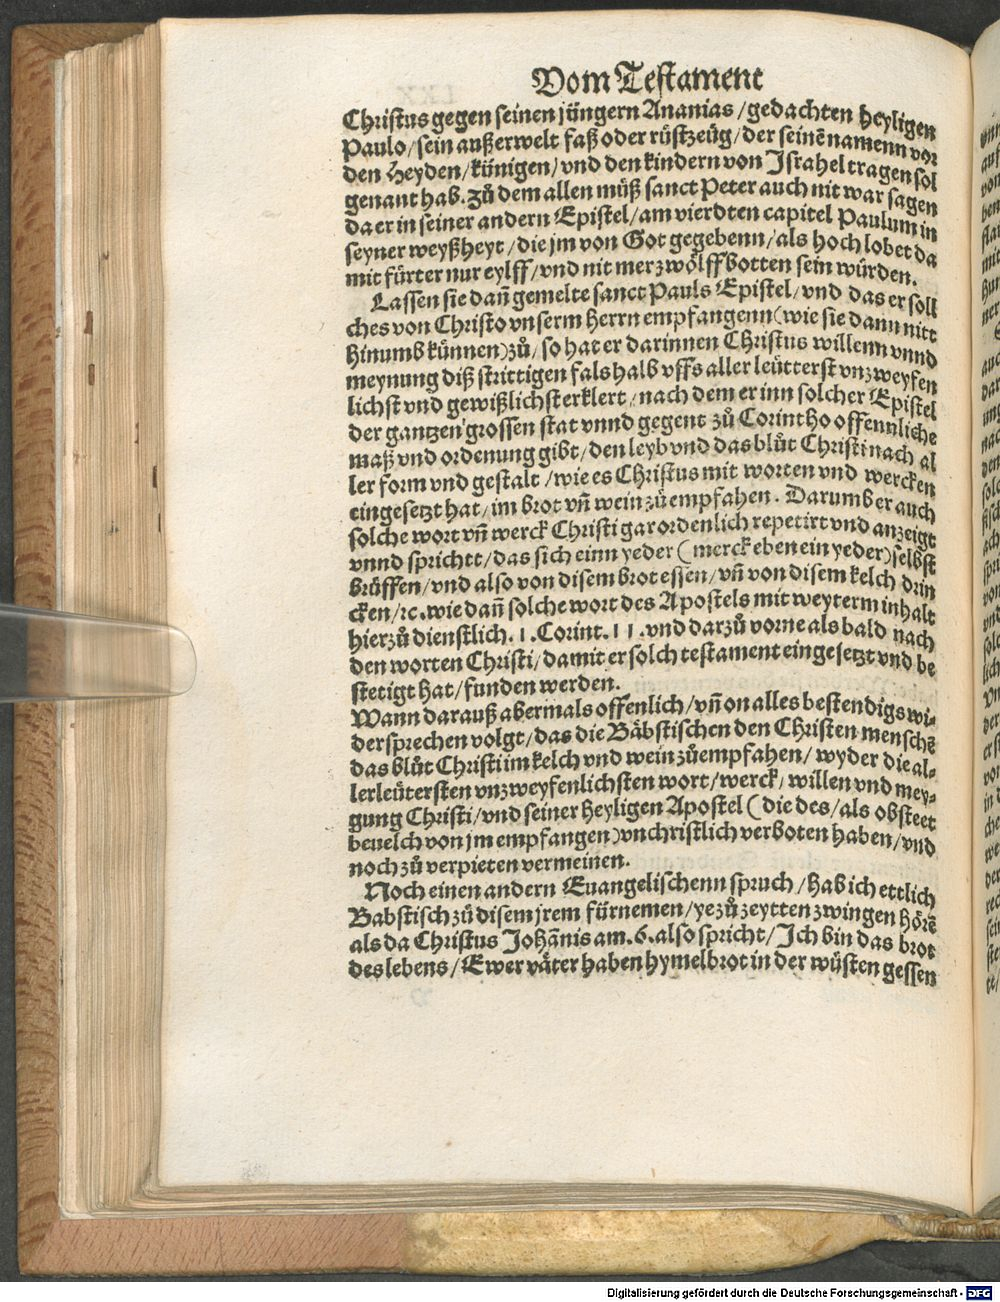 Vom Testament
Christus gegen seinen jüngern Ananias/gedachten heyligen
Paulo/sein außerwelt faß oder rüstzeüg/der seinē namenn vor
den Heyden/künigen/vnd den kindern von Israhel tragen sol
genant hab. Zů dem allen müß sanct Peter auch nit war sagen
da er in seiner andern Epistel/am vierdten capitel Paulum in
seyner weyßheyt/die jm von Got gegebenn/als hoch lobet da
mit fürter nur eylff/vnd nit mer zwölffbotten sein würden.
Lassen sie dañ gemelte sanct Pauls Epistel/vnd das er soll
ches von Christo vnserm Herrn empfangenn(wie sie dann nitt
hinumb künnen)zů/so hat er darinnen Christus willenn vnnd
meynung diß strittigen fals halb vffs aller leütterst vnzweyfen
lichst vnd gewißlichst erklert/nach dem er inn solcher Epistel
der gantzen grossen stat vnnd gegent zů Corintho offennliche
maß vnd ordenung gibt/den leyb vnd das blůt Christi nach al
ler form vnd gestalt/wie es Christus mit worten vnd wercken
eingesetzt hat/im brot vñ wein zů empfahen. Darumb er auch
solche wort vñ werck Christi gar ordenlich repetirt vnd anzeigt
vnnd sprichtt/das sich einn yeder (merck eben ein yeder)selbst
brüffen/vnd also von disem brot essen/vñ von disem kelch drin
cken/ꝛc. wie dañ solche wort des Apostels mit weyterm inhalt
hierzů dienstlich. 1. Corint. 11. vnd darzů vorne als bald nach
den worten Christi/damit er solch testament eingesetzt vnd be
stetigt hat/funden werden.
Wann darauß abermals offenlich/vñ on alles bestendigs wi-
dersprechen volgt/das die Bäbstischen den Christen menschē
das blůt Christi im kelch vnd wein zů empfahen/wyder die al-
lerleütersten vnzweyfenlichsten wort/werck/willen vnd mey-
gung Christi/vnd seiner heyligen Apostel (die des/als obsteet
beuelch von jm empfangen)vnchristlich verboten haben/vnd
noch zů verpieten vermeinen.
Noch einen andern Euangelischenn spruch/hab ich ettlich
Babstisch zů disem jrem fürnemen/ye zů zeytten zwingen hörē
als da Christus Johānis am. 6. also spricht/Ich bin das brot
des lebens/Ewer väter haben hymelbrot in der wüsten gessen
Digitalisierung gefördert durch die Deutsche Forschungsgemeinschaft - DFG